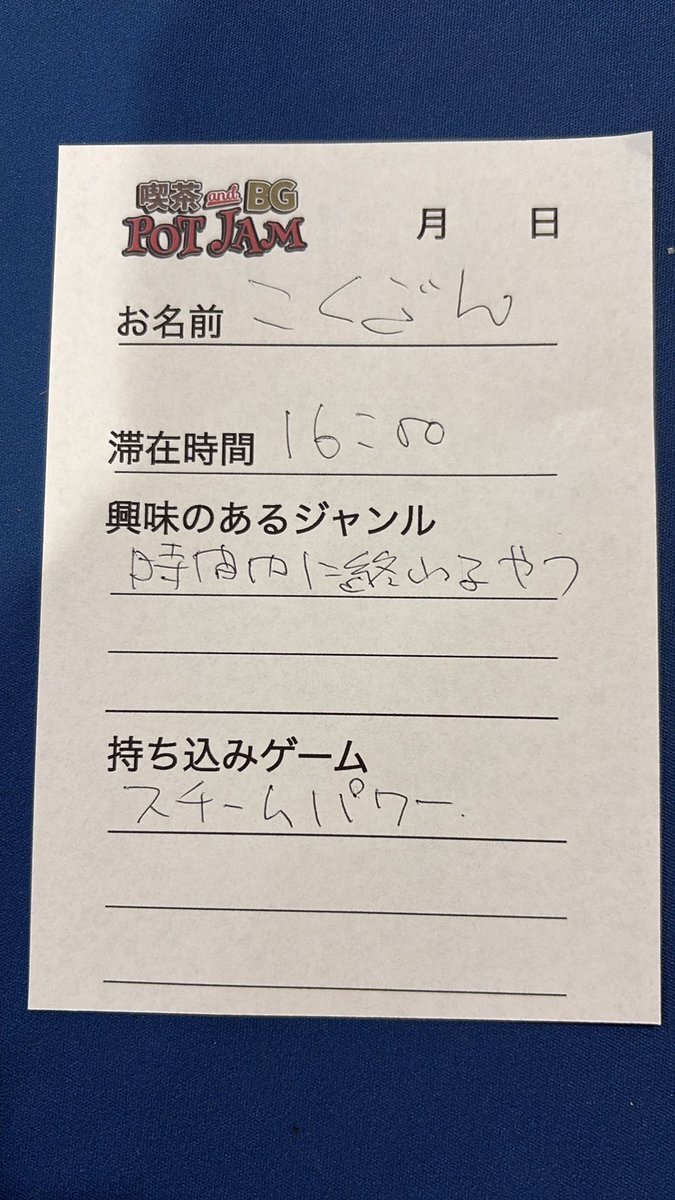 喫茶 and BG
POT JAM
月 日
お名前 こくごん
滞在時間 16:00
興味のあるジャンル
時間内に終わるやつ
持ち込みゲーム
スチームパワー.